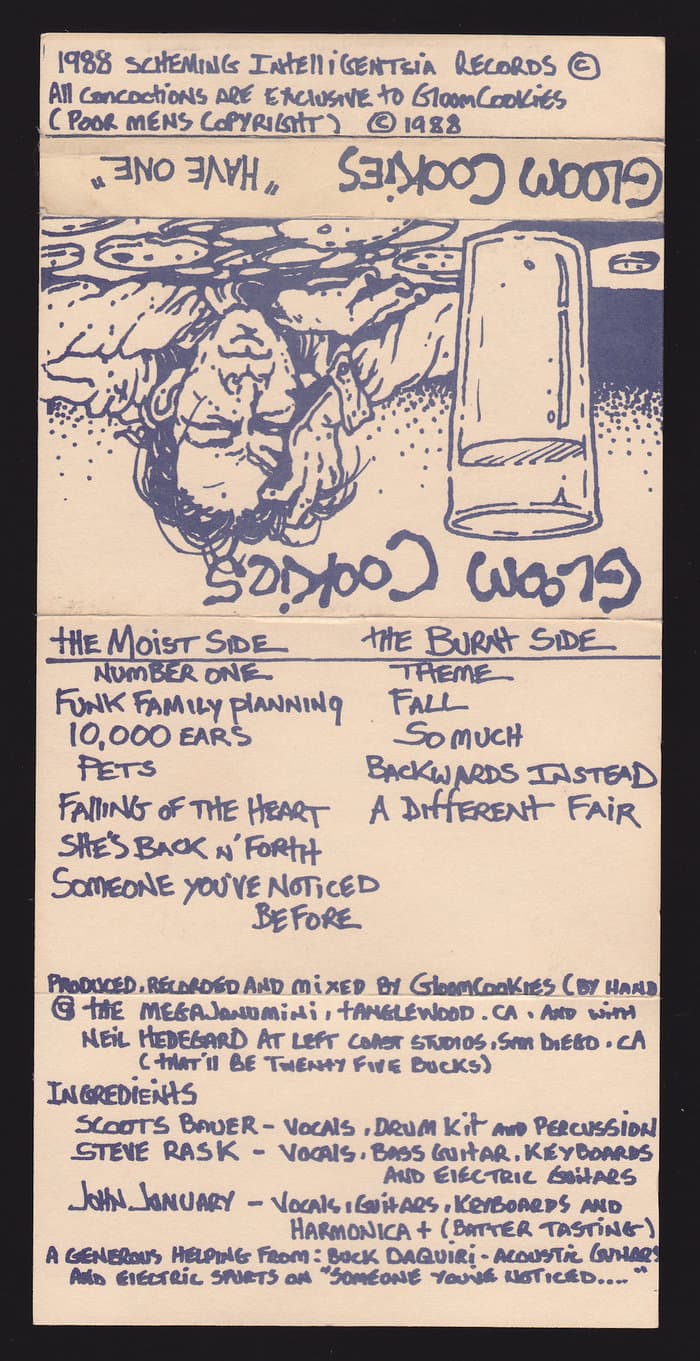 1988 SCHEMING INTELLIGENTSIA RECORDS ©
All CONCOCTIONS ARE EXCLUSIVE TO GLOOMCOOKIES
(POOR MENS COPYRIGHT) © 1988
GLOOM COOKIES "HAVE ONE"
GLOOM COOKIES
THE MOIST SIDE
NUMBER ONE
FUNK FAMILY PLANNING
10,000 EARS
PETS
FALLING OF THE HEART
SHE'S BACK N' FORTH
SOMEONE YOU'VE NOTICED
BEFORE
THE BURNT SIDE
THEME
FALL
SO MUCH
BACKWARDS INSTEAD
A DIFFERENT FAIR
PRODUCED, RECORDED AND MIXED BY GLOOMCOOKIES (BY HAND
@ THE MEGAJANUMINI, TANGLEWOOD. CA. AND WITH
NEIL HEDEGARD AT LEFT COAST STUDIOS, SAN DIEGO. CA
(THAT'll BE TWENTY FIVE BUCKS)
INGREDIENTS
SCOOTS BAUER - VOCALS, DRUM KIT AND PERCUSSION
STEVE RASK - VOCALS, BASS GUITAR, KEYBOARDS
AND ELECTRIC GUITARS
JOHN JANUARY - VOCALS, GUITARS, KEYBOARDS AND
HARMONICA + (BATTER TASTING)
A GENEROUS HELPING FROM: BUCK DAQUIRI - ACOUSTIC GUITARS
AND ELECTRIC SPURTS ON "SOMEONE YOUVE NOTICED...."